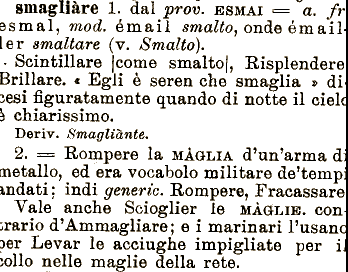 smagliàre 1. dal prov. ESMAI = a. fr
esmal, mod. émail smalto, onde émail-
ler smaltare (v. Smalto).
Scintillare |come smalto|, Risplendere
Brillare. « Egli è seren che smaglia » di-
cesi figuratamente quando di notte il cielo
è chiarissimo.
Deriv. Smagliànte.
2. = Rompere la MÀGLIA d'un'arma di
metallo, ed era vocabolo militare de'tempi
andati; indi generic. Rompere, Fracassare
Vale anche Scioglier le MÀGLIE. con-
trario d'Ammagliare; e i marinari l'usano
per Levar le acciughe impigliate per il
collo nelle maglie della rete.